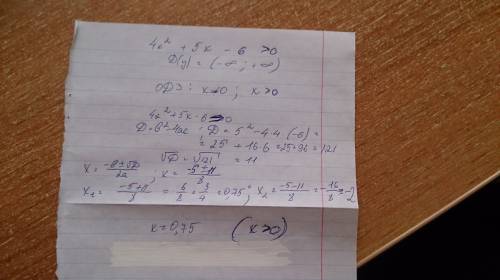 4x² + 5x - 6 > 0
D(y) = (-∞; +∞)
ОДЗ: x≠0; x>0
4x² + 5x - 6 = 0
D = b² - 4ac; D = 5² - 4·4·(-6) =
= 25 + 16·6 = 25+96 = 121
√D = √121 = 11
x = -b±√D/2a; x = -5±11/8
x₁ = -5+11/8 = 6/8 = 3/4 = 0,75; x₂ = -5-11/8 = -16/8 = -2
x = 0,75 (x>0)